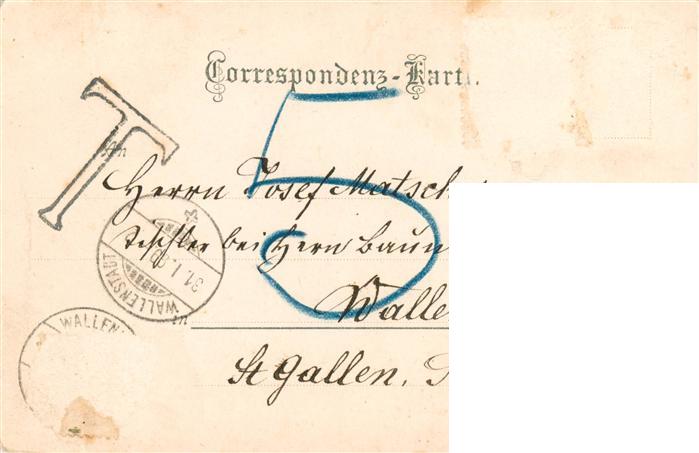 Correspondenz-Karte.
T
5
An
Herrn Josef Matsch
Tischler bei Herrn Baum
in Walle
St Gallen.
WALLENSTADT
31. I.
WALLEN